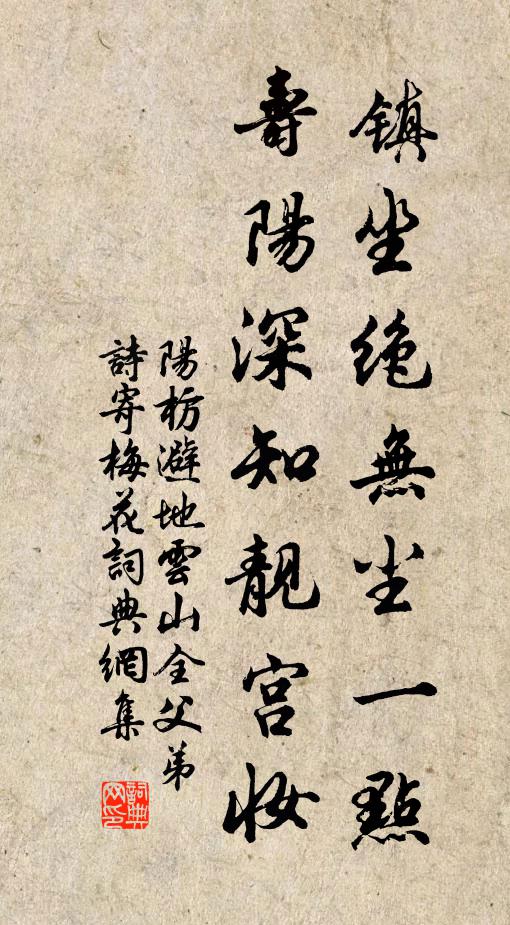 镇坐绝無尘一點
壽陽深知靚宫妆
陽枋避地雲山全父弟
詩寄梅花詞典網集
詞典
网印